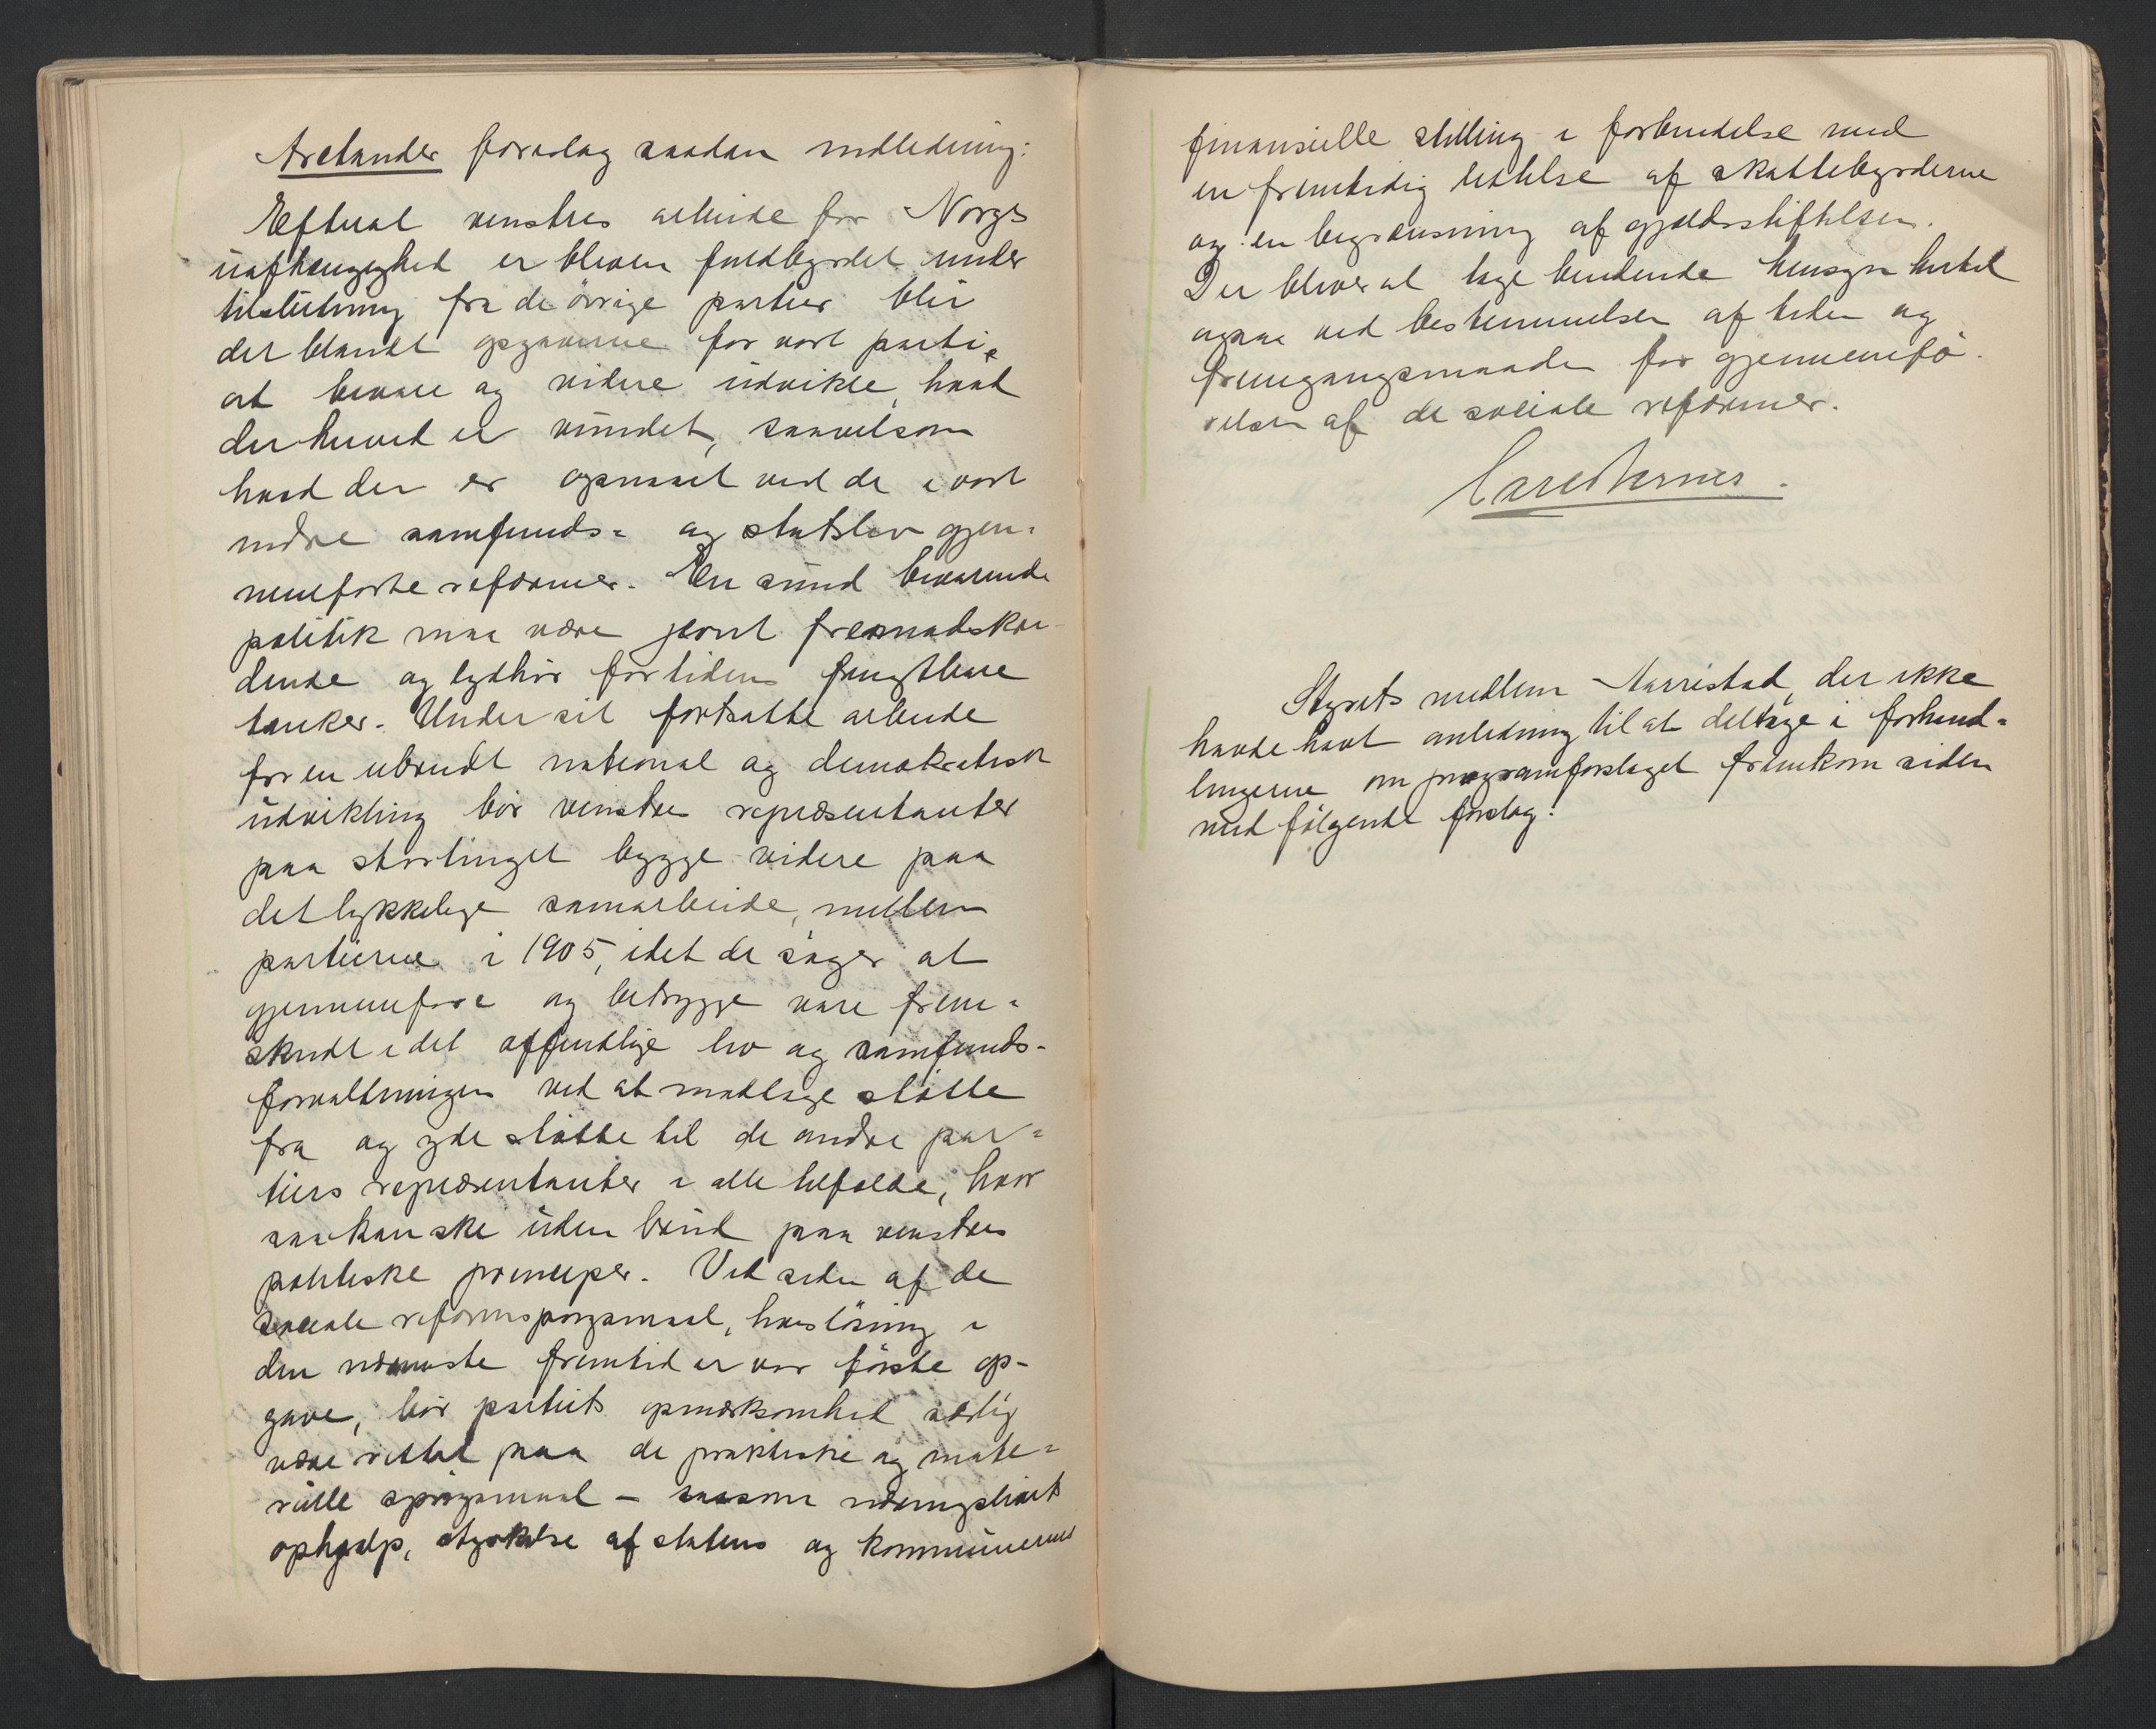 Arctander foreslog saadan indledning:
Efterat venstres arbeide for Norges
uafhængighed er bleven fuldbyrdet under
tilslutning fra de övrige partier blir
det blandt opgaverne for vort parti,
at bevare og videre udvikle, hvad
der herved er vundet, saavelsom
hvad der er opnaaet ved de i vort
indre samfunds- og statsliv gjen-
nemførte reformer. En sund bevarende
politik maa være jevnt fremadskri-
dende og lydhör for tidens frugtbare
tanker. Under sit fortsatte arbeide
for en ubrudt national og demokratisk
udvikling bör venstres repræsentanter
paa stortinget bygge videre paa
det lykkelige samarbeide, mellem
partierne i 1905, idet de söger at
gjennemføre og betrygge vare frem-
skridt i det offentlige liv og samfunds-
forvaltningen ved at modtage stötte
fra og yde stötte til de andre par-
tiers repræsentanter i alle tilfælde, hvor
saa kan ske uden brud paa venstres
politiske principer. Ved siden af de
sociale reformspörgsmaal, hvis lösning i
den nærmeste fremtid er vor förste op-
gave, bör partiets opmærksomhed særlig
være rettet paa de praktiske og mate-
rielle spörgsmaal – saasom næringslivets
ophjælp, styrkelse af statens og kommunernes
finansielle stilling i forbindelse med
en fremtidig lettelse af skattebyrderne
og en begrænsning af gjældsstiftelsen.
Der bliver at tage bindende hensyn hertil
ogsaa ved bestemmelsen af tiden og
fremgangsmaaden for gjennemfö-
relsen af de sociale reformer.
Styrets medlem Aarrestad, der ikke
havde havt anledning til at deltage i forhand-
lingerne om programforslaget fremkom siden
med fölgende forslag: